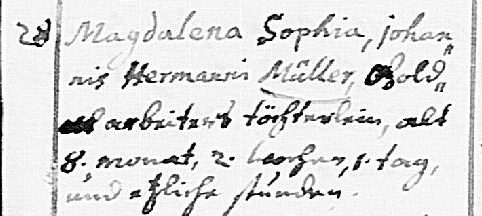 28 Magdalena Sophia, johan„
nis Hermanni Müller, Gold„
arbeiters töchterlein, alt
8. monat, 2. wochen, 1. tag,
und etzliche stunden.